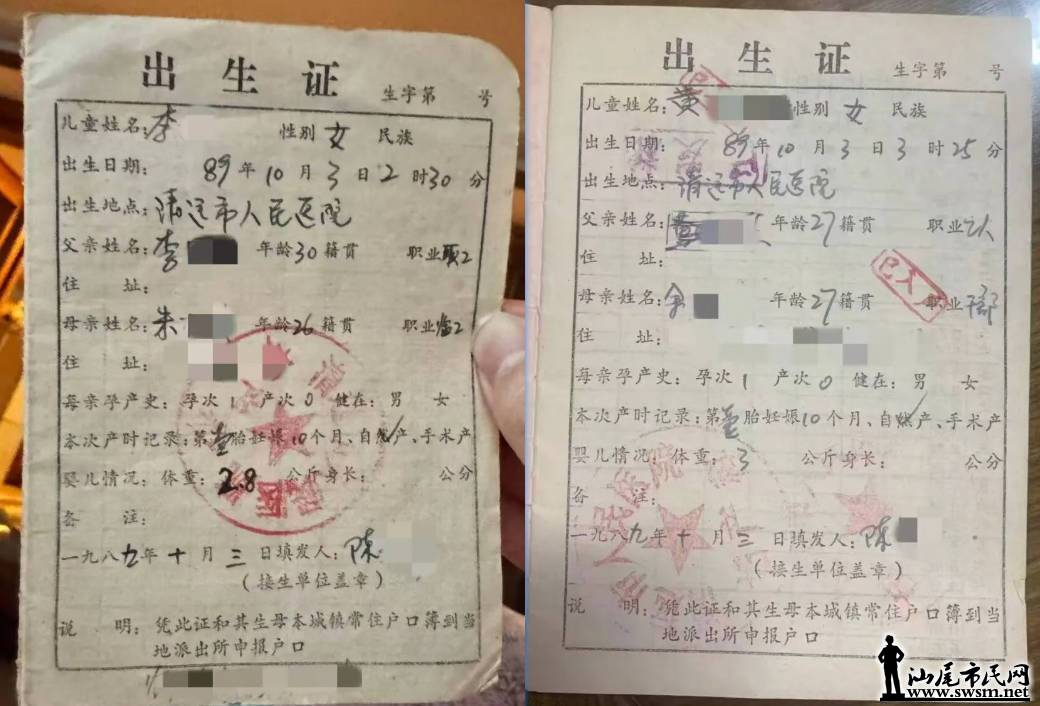 出生证
生字第 号
儿童姓名：李 性别 女 民族
出生日期： 89年10月3日2时30分
出生地点：清远市人民医院
父亲姓名：李 年龄30籍贯 职业
住 址：
母亲姓名：朱 年龄26籍贯 职业
住 址：
母亲孕产史：孕次1 产次0 健在：男 女
本次产时记录：第壹胎妊娠10个月、自然产、手术产
婴儿情况：体重：2.8 公斤身长： 公分
备 注：
一九八九年十月三日填发人：陈
（接生单位盖章）
说 明：凭此证和其生母本城镇常住户口簿到当
地派出所申报户口
出生证
生字第 号
儿童姓名：黄 性别 女 民族
出生日期： 89年10月3日3时25分
出生地点：清远市人民医院
父亲姓名： 年龄27籍贯 职业
住 址：
母亲姓名：余 年龄27籍贯 职业干部
住 址：
母亲孕产史：孕次1 产次0 健在：男 女
本次产时记录：第壹胎妊娠10个月、自然产、手术产
婴儿情况：体重：3 公斤身长： 公分
备 注：
一九八九年十月三日填发人：陈
（接生单位盖章）
说 明：凭此证和其生母本城镇常住户口簿到当
地派出所申报户口
已入
汕尾市民网
www.swsm.net